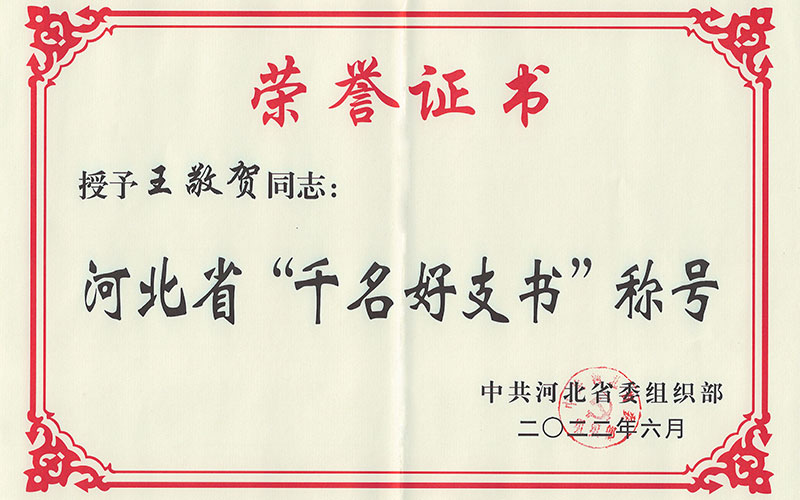 荣誉证书
授予王敬贺同志：
河北省“千名好支书”称号
中共河北省委组织部
二〇二二年六月